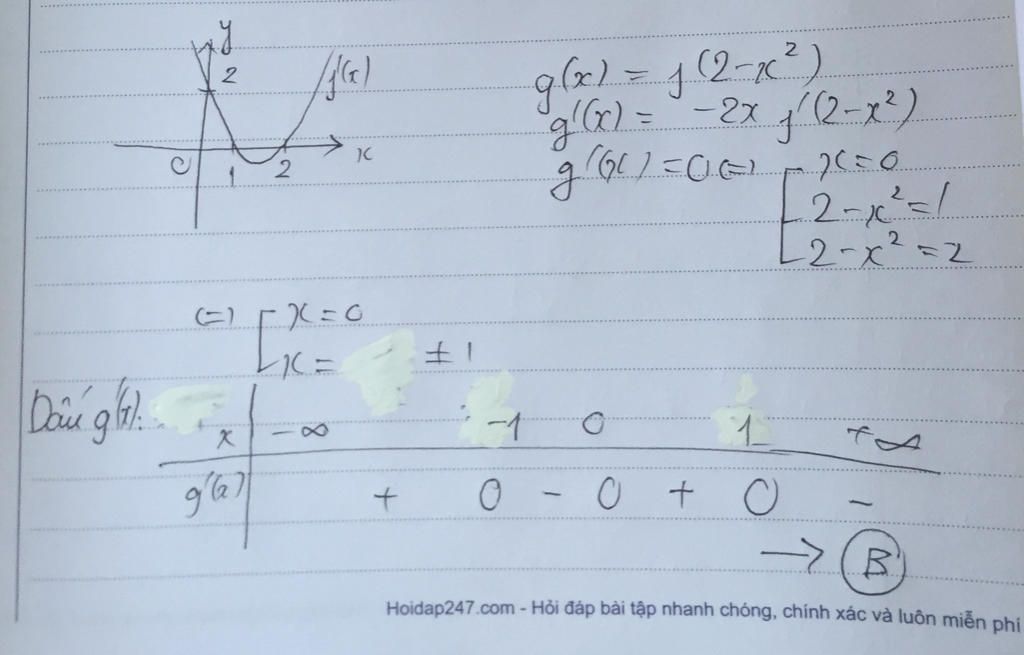 y
2
f'(x)
O 1 2 x
g(x) = f(2-x²)
g'(x) = -2x f'(2-x²)
g'(x) = 0 (=) [ x = 0
2-x² = 1
2-x² = 2
(=) [ x = 0
x = ± 1
Dấu g'(x):
x -∞ -1 0 1 +∞
g'(x) + 0 - 0 + 0 -
→ B
Hoidap247.com - Hỏi đáp bài tập nhanh chóng, chính xác và luôn miễn phí